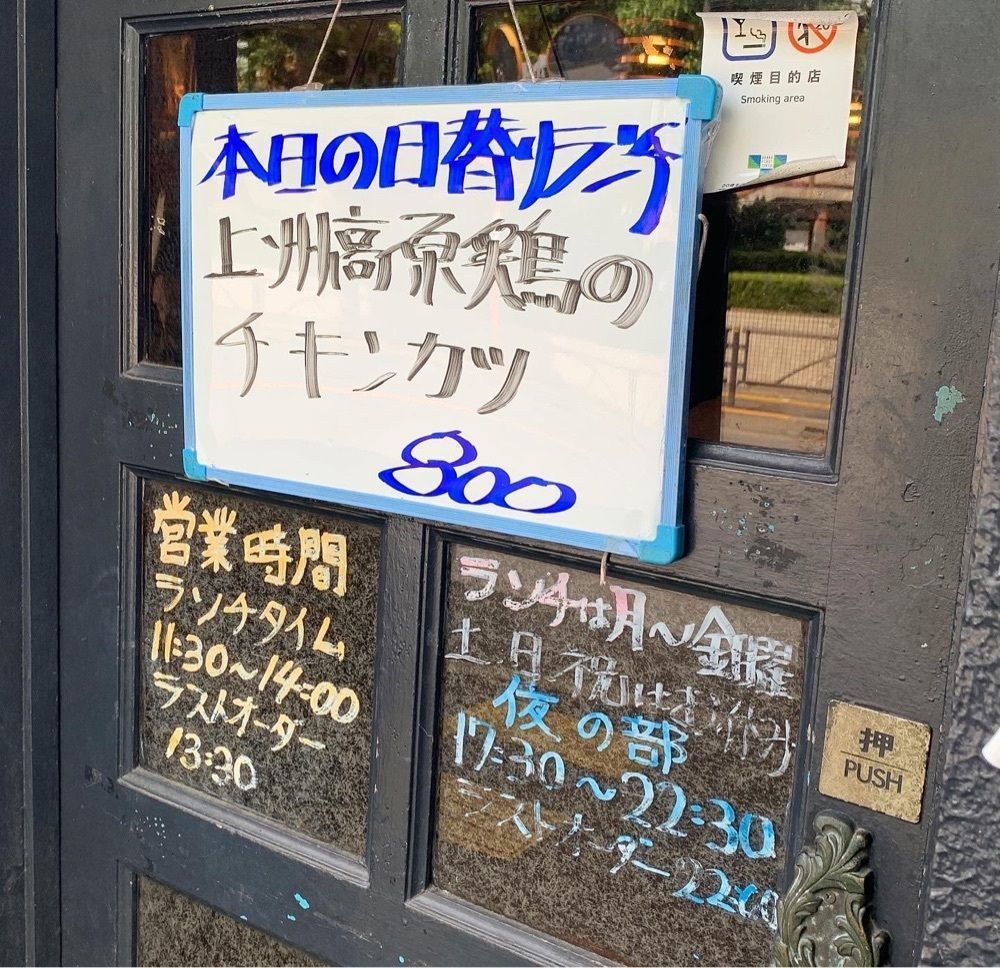 本日の日替ランチ
上州高原鶏の
チキンカツ
800
喫煙目的店
Smoking area
営業時間
ランチタイム
11:30～14:00
ラストオーダー
13:30
ランチは月～金曜
土.日.祝はお休み
夜の部
17:30～22:30
ラストオーダー22:00
押
PUSH